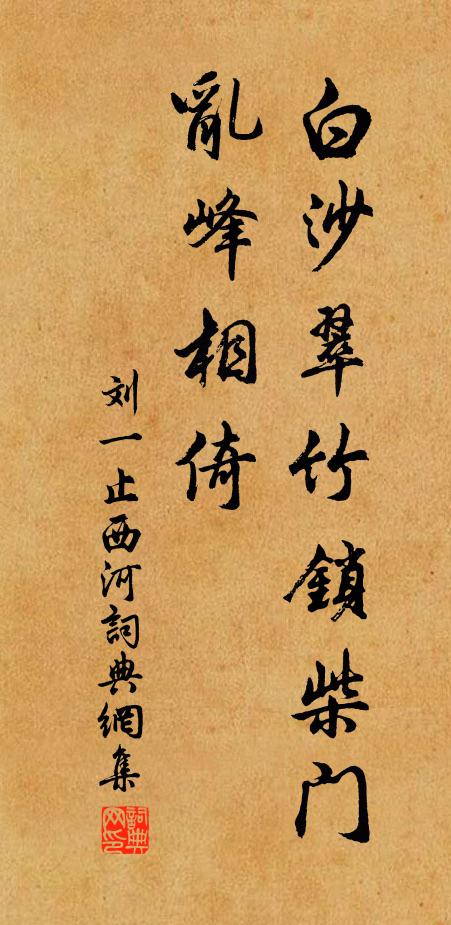 白沙翠竹鎖柴门
亂峰相倚
刘一止西河詞典網集
詞典网印